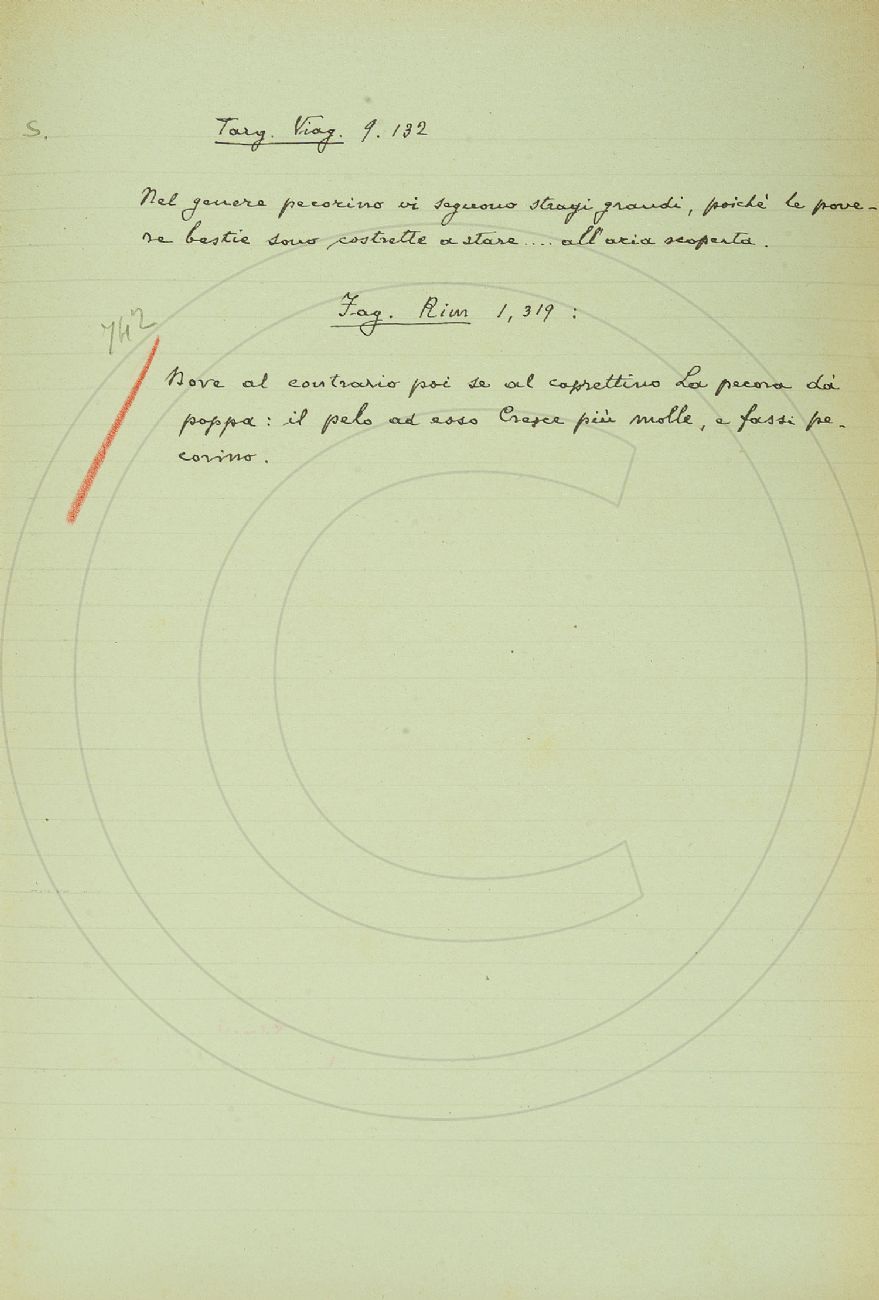 S.
Targ. Viag. 9. 132
Nel genere pecorino vi seguono stragi grandi, poiché le pove-
re bestie sono costrette a stare.... all'aria scoperta.
Fag. Rim 1, 319 :
742
Dove al contrario poi se al caprettino La pecora dà
poppa: il pelo ad esso Cresce più molle, e fassi pe-
corino.